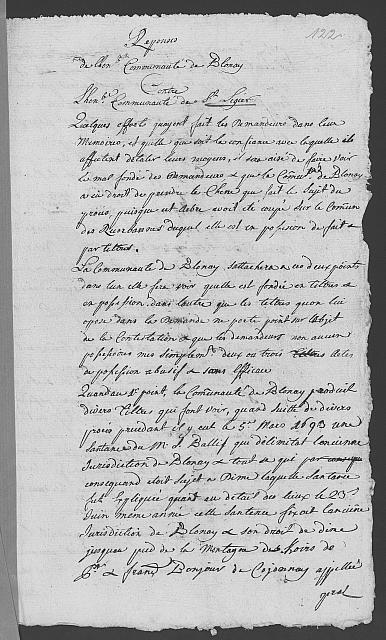 122
Reponses
de Lhon.ble Communauté de Blonay
Contre
Lhon.ble Communauté de St. Legier
Quelques efforts qu'ayent fait les Demandeurs dans leur
Memoires, et quelle que soit la confiance avec laquelle ils
affectent d'etaler leurs moyens, il sera aisé de faire voir
le mal fondé des Demandeurs & que la Comūté de Blonay
a eu droit de prendre le Chene qui fait le sujet du
procès, puisque cet arbre avoit été coupé sur le Commun
des duquel elle est en possession de fait &
par tittres.
La Communauté de Blonay s'attachera a ces deux points
dans l'un elle fera voir quelle est fondée en tittres &
en possession, dans l'autre que les tittres qu'on lui
opose dans la Demande ne porte point sur l'objet
de la Contestation & que les demandeurs n'ont aucun
possessoires mes simplemt. deux ou trois Tittres actes
de possession abusif & sans efficace
Quand au 1r. point, la Comunauté de Blonay produit
divers Tittres qui font voir, quand Suite de divers
procès precedant il y eut le 5e. Mars 1693 une
santance du Mr. J. Ballif qui délimitat l'ancienne
Jurisdiction de Blonay & tout ce qui par
consequand étoit sujet a Dime laquelle santance
fut Expliquée quant au détail des lieux le 23e.
Juin meme année cette santence fixoit l'ancienne
Jurisdiction de Blonay & son droit de dime
jusques pied de la Montagne des
& franç. Bonjour de appellée